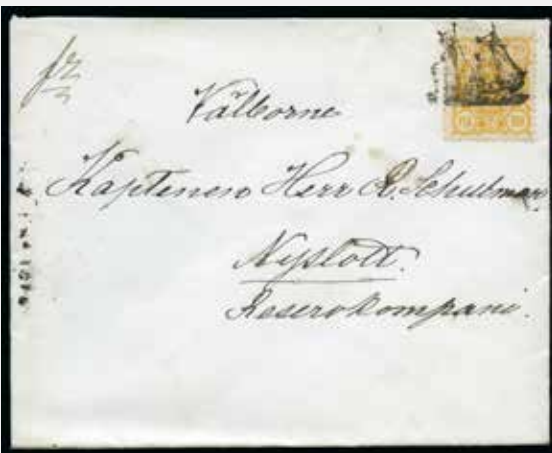 fr
Välborne
Kaptenen Herr R. Schulman
Nyslott.
Reservkompani.